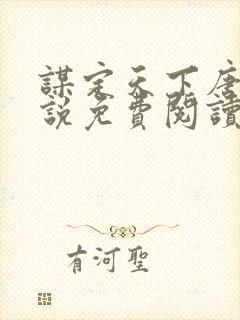 謀定天下唐
說免費閱讀
有河聖